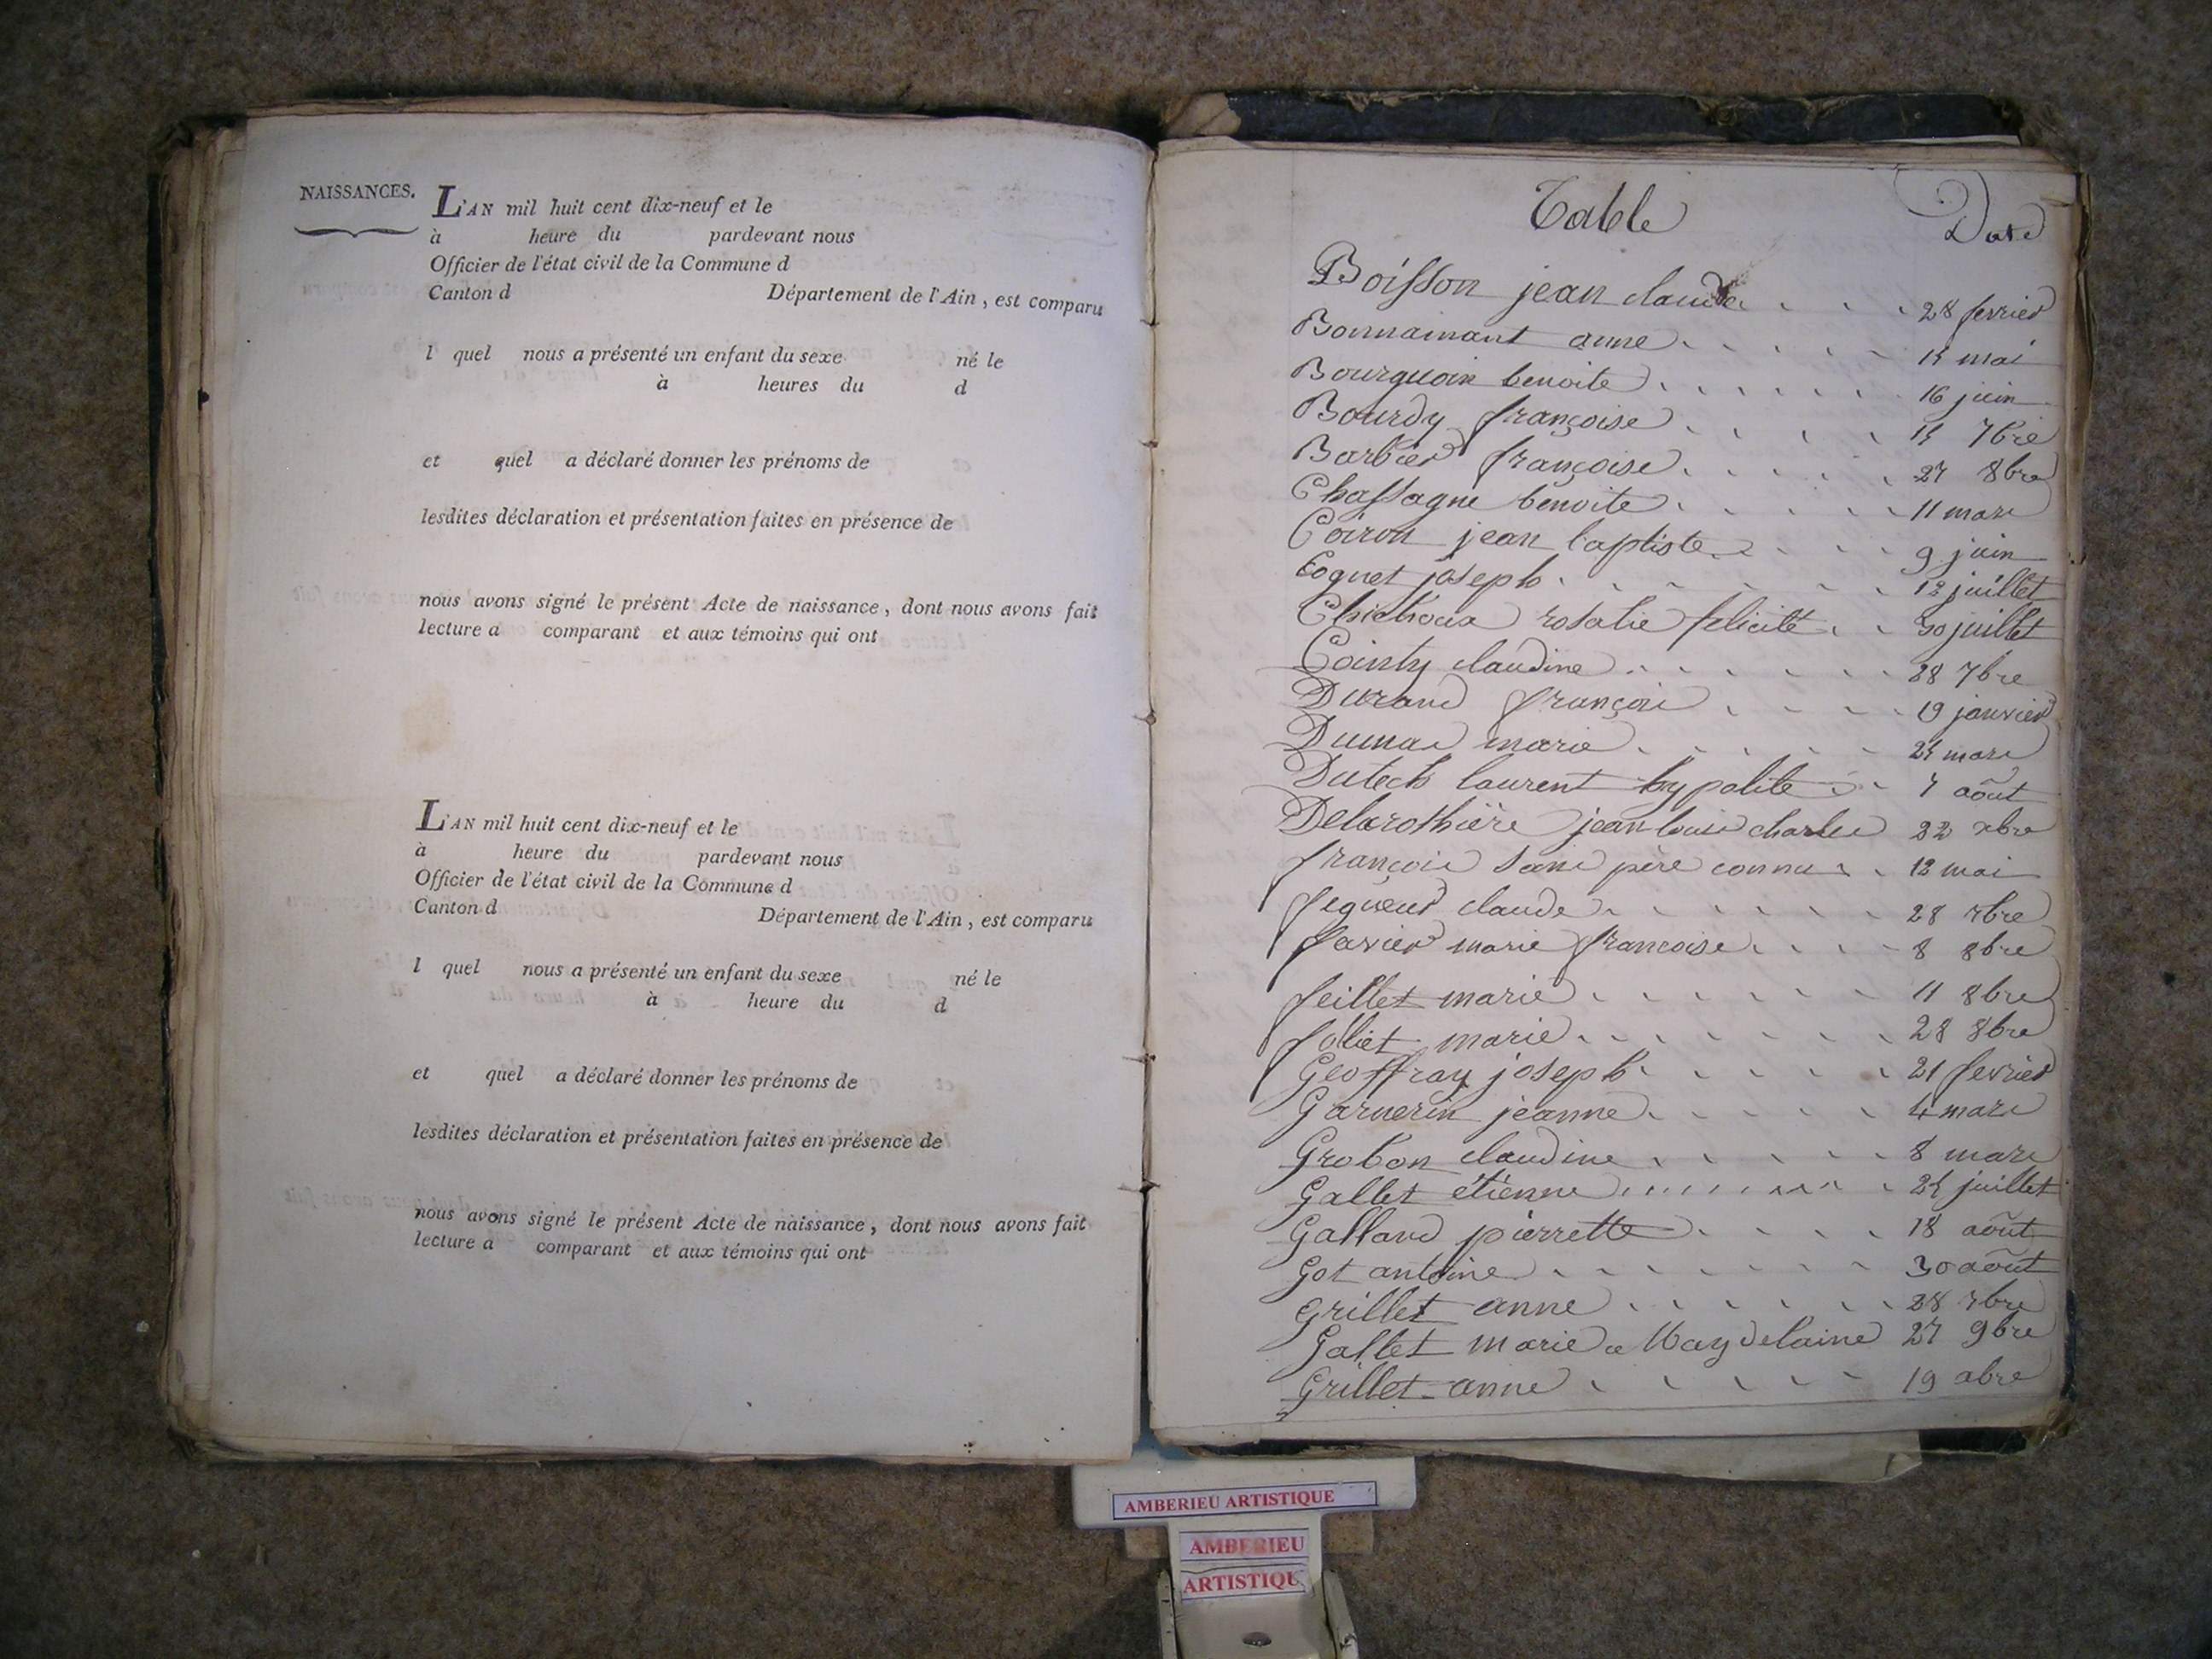 NAISSANCES.
L'AN mil huit cent dix-neuf et le
à heure du pardevant nous
Officier de l'état civil de la Commune d
Canton d Département de l'Ain, est comparu
l quel nous a présenté un enfant du sexe né le
à heures du d
et quel a déclaré donner les prénoms de
lesdites déclaration et présentation faites en présence de
nous avons signé le présent Acte de naissance, dont nous avons fait
lecture a comparant et aux témoins qui ont
L'AN mil huit cent dix-neuf et le
à heure du pardevant nous
Officier de l'état civil de la Commune d
Canton d Département de l'Ain, est comparu
l quel nous a présenté un enfant du sexe né le
à heure du d
et quel a déclaré donner les prénoms de
lesdites déclaration et présentation faites en présence de
nous avons signé le présent Acte de naissance, dont nous avons fait
lecture a comparant et aux témoins qui ont
Table Date
Boisson jean claude 28 fevrier
Bonnamant anne mai
Bourguoin benoite 16 juin
Bourdy françoise 7bre
Barbier françoise 27 8bre
Chassagne benoite 11 mars
Coiron jean baptiste 9 juin
Cognet joseph 12 juillet
rosalie felicité 30 juillet
Cointy claudine 28 7bre
Durand françois 19 janvier
Dumas marie mars
Dutech laurent hypolite 7 août
Delarothière jean louis charles 22 xbre
françois sans père connu 12 mai
claude 28
favier marie francoise 8 8bre
feillet marie 11 8bre
folliet marie 28 8bre
Geoffray joseph 21 fevrier
Garnerin jeanne 4 mars
Grobon claudine 8 mars
Gallet étienne juillet
Galland pierrette 18 août
Got antoine 30 août
Grillet anne 28
Gallet marie Magdelaine 27 9bre
Grillet anne 19
AMBERIEU ARTISTIQUE
AMBERIEU
ARTISTIQU